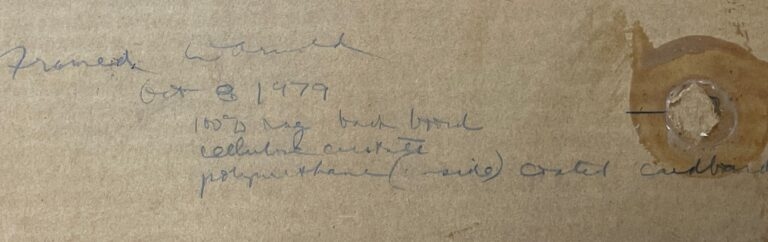 Framed
Oct 8 1979
100% rag back board
cellulose
polyurethane ( side) coated cardboard